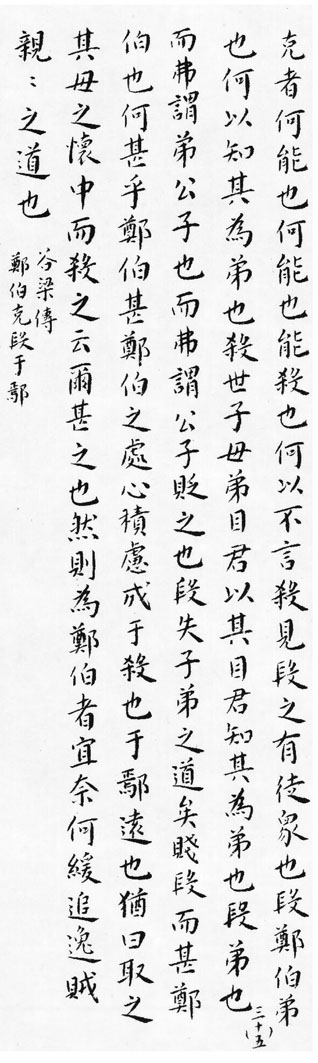 克者何能也何能也能殺也何以不言殺見段之有徒眾也段鄭伯弟
也何以知其為弟也殺世子母弟目君以其目君知其為弟也段弟也
而弗謂弟公子也而弗謂公子貶之也段失子弟之道矣賤段而甚鄭
伯也何甚乎鄭伯甚鄭伯之處心積慮成于殺也于鄢遠也猶曰取之
其母之懷中而殺之云爾甚之也然則為鄭伯者宜奈何緩追逸賊
親〻之道也
谷梁傳
鄭伯克段于鄢
三十(五)